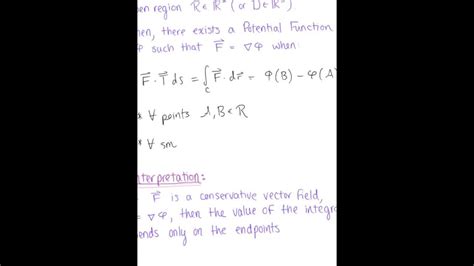 pen region R∈ℝ² (or D∈ℝ³)
hen, there exists a Potential Function
φ such that F⃗ = ∇φ when:
F⃗·T⃗ ds = ∫_C F⃗·dr⃗ = φ(B) − φ(A)
* ∀ points A, B ∈ R
* ∀ sm
nterpretation:
F⃗ is a conservative vector field,
= ∇φ, then the value of the integra
ends only on the endpoints